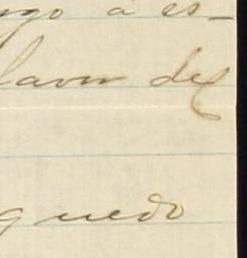 go á es-
favor de
quedo